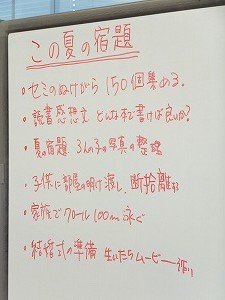 この夏の宿題
・セミのぬけがら 150個集める。
・読書感想文 どんな本で書けば良いか?
・夏の宿題 3人の子の写真の整理
・子供に部屋の明け渡し、断捨離
・家族でクロール100m泳ぐ
・結婚式の準備 生いたちムービー